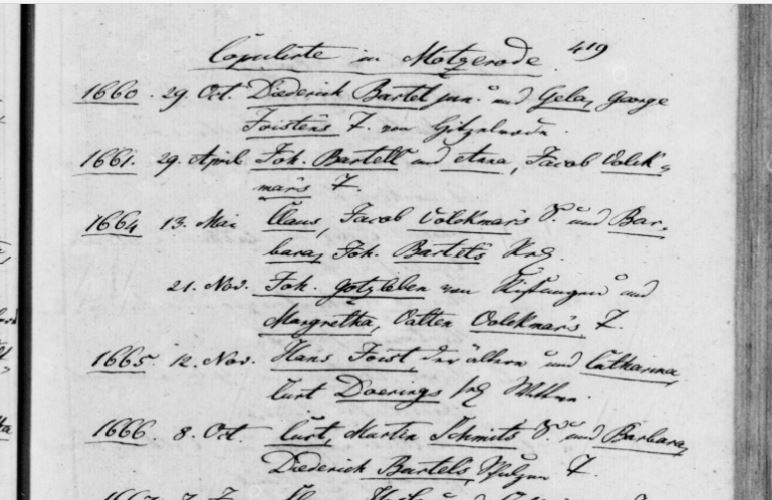 Copulirte in Motzerode. 419
1660. 29. Oct. Diederich Bartel jun. und Gela, George
Foistens T. von Hitzelrode.
1661. 29. April Joh. Bartell und Anna, Jacob Volck-
mars T.
1664 13. Mai Claus, Jacob Volckmars S. und Bar-
bara, Joh. Bartels
21. Nov. Joh. Gotzleben von und
Margretha, Volckmars T.
1665. 12. Nov. Hans Foist, der ältere und Catharina,
Curt Doerings
1666. 8. Oct. Curt, Martin Schmits S. und Barbara,
Diederich Bartels, T.